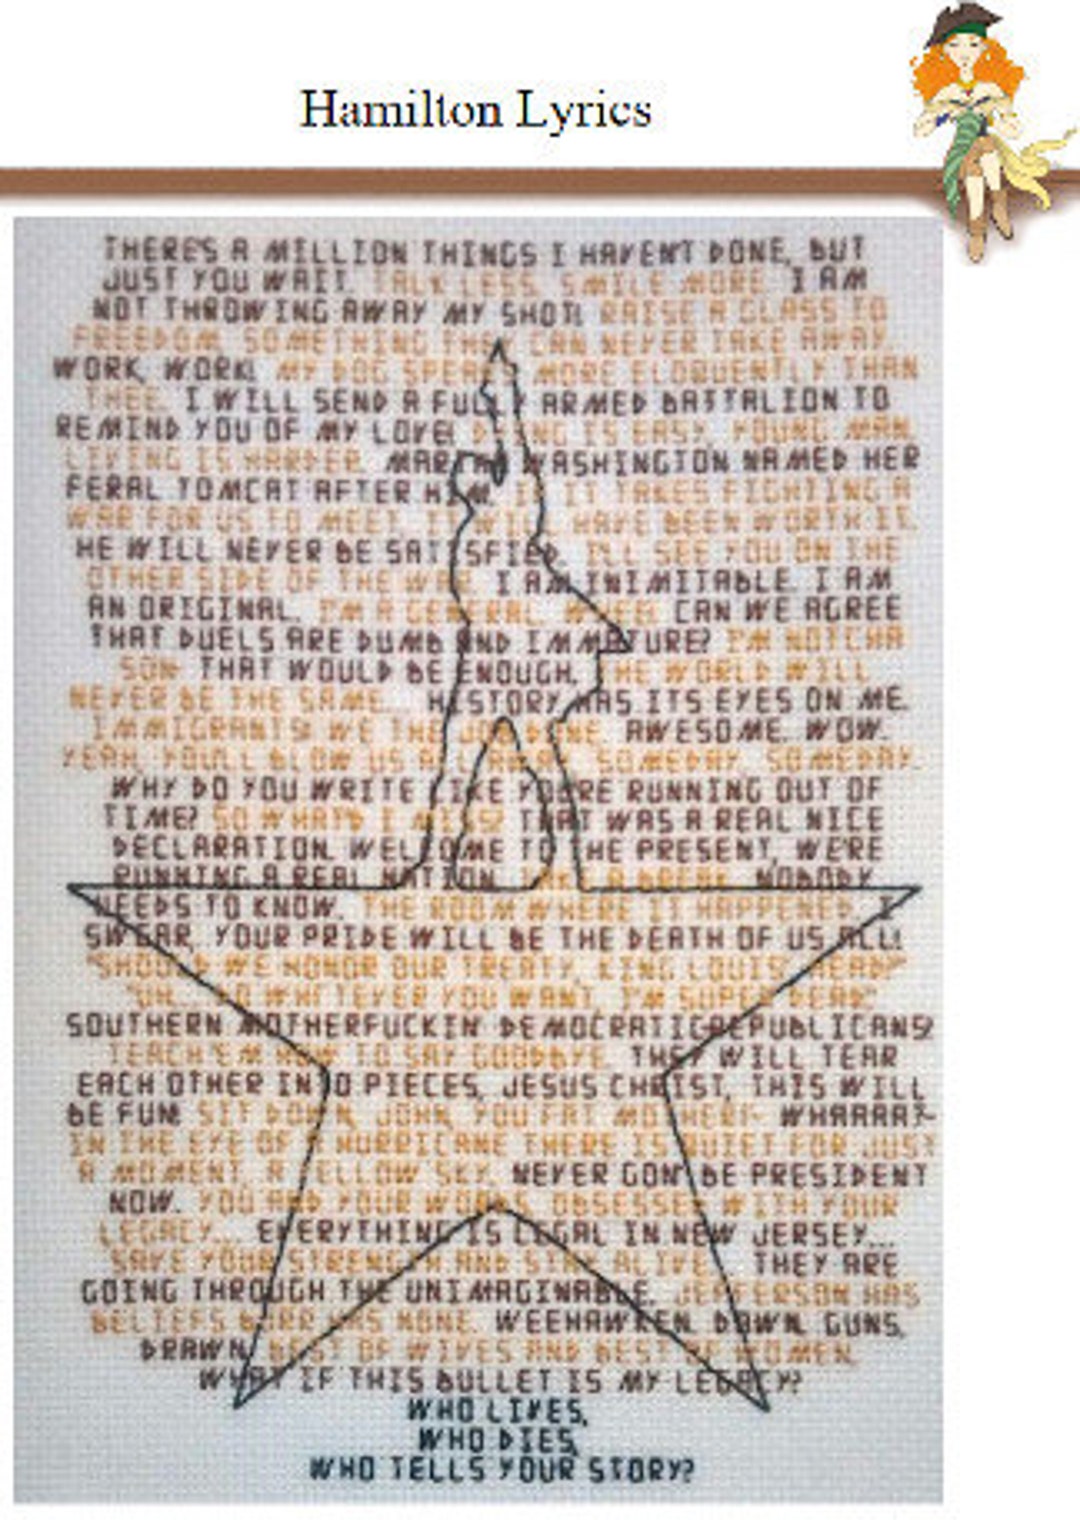 Hamilton Lyrics
THERE'S A MILLION THINGS I HAVEN'T DONE, BUT
JUST YOU WAIT. TALK LESS, SMILE MORE. I AM
NOT THROWING AWAY MY SHOT! RAISE A GLASS TO
FREEDOM, SOMETHING THEY CAN NEVER TAKE AWAY.
WORK, WORK! MY DOG SPEAKS MORE ELOQUENTLY THAN
THEE. I WILL SEND A FULLY ARMED BATTALION TO
REMIND YOU OF MY LOVE! DYING IS EASY, YOUNG MAN,
LIVING IS HARDER. MARTHA WASHINGTON NAMED HER
FERAL TOMCAT AFTER HIM. IF IT TAKES FIGHTING A
WAR FOR US TO MEET, IT WILL HAVE BEEN WORTH IT.
HE WILL NEVER BE SATISFIED. I'LL SEE YOU ON THE
OTHER SIDE OF THE WAR. I AM INIMITABLE. I AM
AN ORIGINAL. I'M A GENERAL. WHEE! CAN WE AGREE
THAT DUELS ARE DUMB AND IMMATURE? I'M NOTCHA
SON. THAT WOULD BE ENOUGH. THE WORLD WILL
NEVER BE THE SAME... HISTORY HAS ITS EYES ON ME.
IMMIGRANTS! WE THE JOB DONE. AWESOME. WOW.
YEAH, YOU'LL BLOW US ALL AWAY, SOMEDAY, SOMEDAY.
WHY DO YOU WRITE LIKE YOU'RE RUNNING OUT OF
TIME? SO WHAT'D I MISS? THAT WAS A REAL NICE
DECLARATION. WELCOME TO THE PRESENT, WE'RE
RUNNING A REAL NATION. TAKE A BREAK. NOBODY
NEEDS TO KNOW. THE ROOM WHERE IT HAPPENED. I
SWEAR, YOUR PRIDE WILL BE THE DEATH OF US ALL!
"SHOULD WE HONOR OUR TREATY, KING LOUIS' HEAD?"
"UH... DO WHATEVER YOU WANT, I'M SUPER DEAD."
SOUTHERN MOTHERFUCKIN' DEMOCRATIC-REPUBLICANS!
TEACH 'EM HOW TO SAY GOODBYE. THEY WILL TEAR
EACH OTHER INTO PIECES, JESUS CHRIST, THIS WILL
BE FUN! SIT DOWN, JOHN, YOU FAT MOTHERF- WHAAAA?-
IN THE EYE OF A HURRICANE THERE IS QUIET FOR JUST
A MOMENT, A YELLOW SKY. NEVER GON' BE PRESIDENT
NOW. YOU AND YOUR WORDS, OBSESSED WITH YOUR
LEGACY... EVERYTHING IS LEGAL IN NEW JERSEY...
SAVE YOUR STRENGTH AND STAY ALIVE... THEY ARE
GOING THROUGH THE UNIMAGINABLE. JEFFERSON HAS
BELIEFS BURR HAS NONE. WEEHAWKEN. DAWN. GUNS.
DRAWN. BEST OF WIVES AND BEST OF WOMEN.
WHAT IF THIS BULLET IS MY LEGACY?
WHO LIVES,
WHO DIES,
WHO TELLS YOUR STORY?